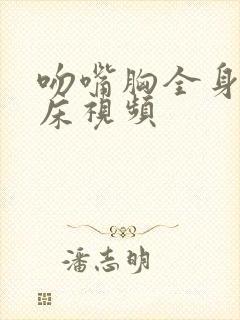 吻嘴胸全身
床視頻
潘志明